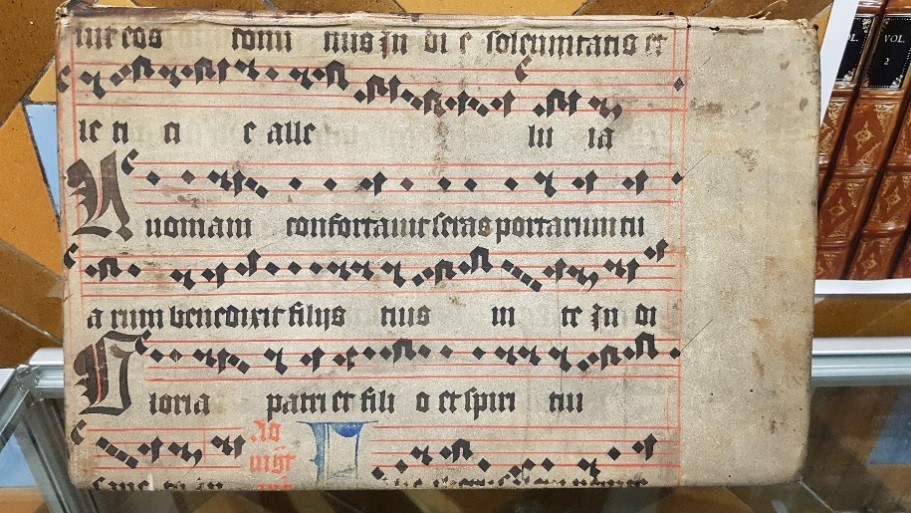 eos domi nus In di e solempnitatis et
le ti ci e alle lu ia
Q uoniam confortauit seras portarum tu
a rum benedixit filijs tuis in te In di
G loria patri et fili o et spiri tui
Ad
sanc to In
VOL.
2